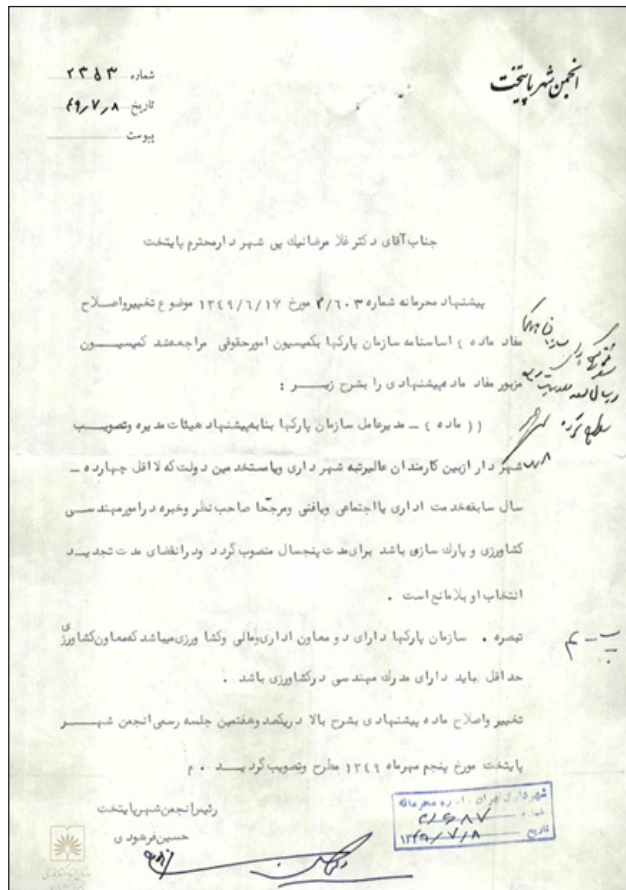 انجمن شهر پایتخت
شماره ۲۳۵۳
تاریخ ۴۹٫۷٫۸
پیوست
جناب آقای دکتر غلامرضا نیک پی شهردار محترم پایتخت
پیشنهاد محرمانه شماره ۲/۶۰۳ مورخ ۱۳۴۹/۶/۱۷ موضوع تغییر و اصلاح
مفاد ماده ۴ اساسنامه سازمان پارکها بکمیسیون امور حقوقی مراجعه شد کمیسیون
مزبور مفاد ماده پیشنهادی را بشرح زیر :
(( ماده ۴ – مدیرعامل سازمان پارکها بنا به پیشنهاد هیئات مدیره وتصویب
شهردار ازبین کارمندان عالیرتبه شهرداری ویا مستخدمین دولت که لااقل چهارده –
سال سابقه خدمت اداری یا اجتماعی ویا فنی ومرجحا صاحب نظر وخبره در امور مهندسی
کشاورزی و پارک سازی باشد برای مدت پنجسال منصوب گردد و در انقضای مدت تجدید
انتخاب او بلامانع است .
تبصره . سازمان پارکها دارای دو معاون اداری ومالی وکشاورزی میباشد که معاون کشاورزی
حداقل باید دارای مدرک مهندسی در کشاورزی باشد .
تغییر واصلاح ماده پیشنهادی بشرح بالا در یکصد وهفتمین جلسه رسمی انجمن شهر
پایتخت مورخ پنجم مهرماه ۱۳۴۹ مطرح وتصویب گردید . م
رئیس انجمن شهر پایتخت
حسین فرهودی
شهرداری تهران . اداره محرمانه
شماره
تاریخ ۱۳۴۹/۷/۸